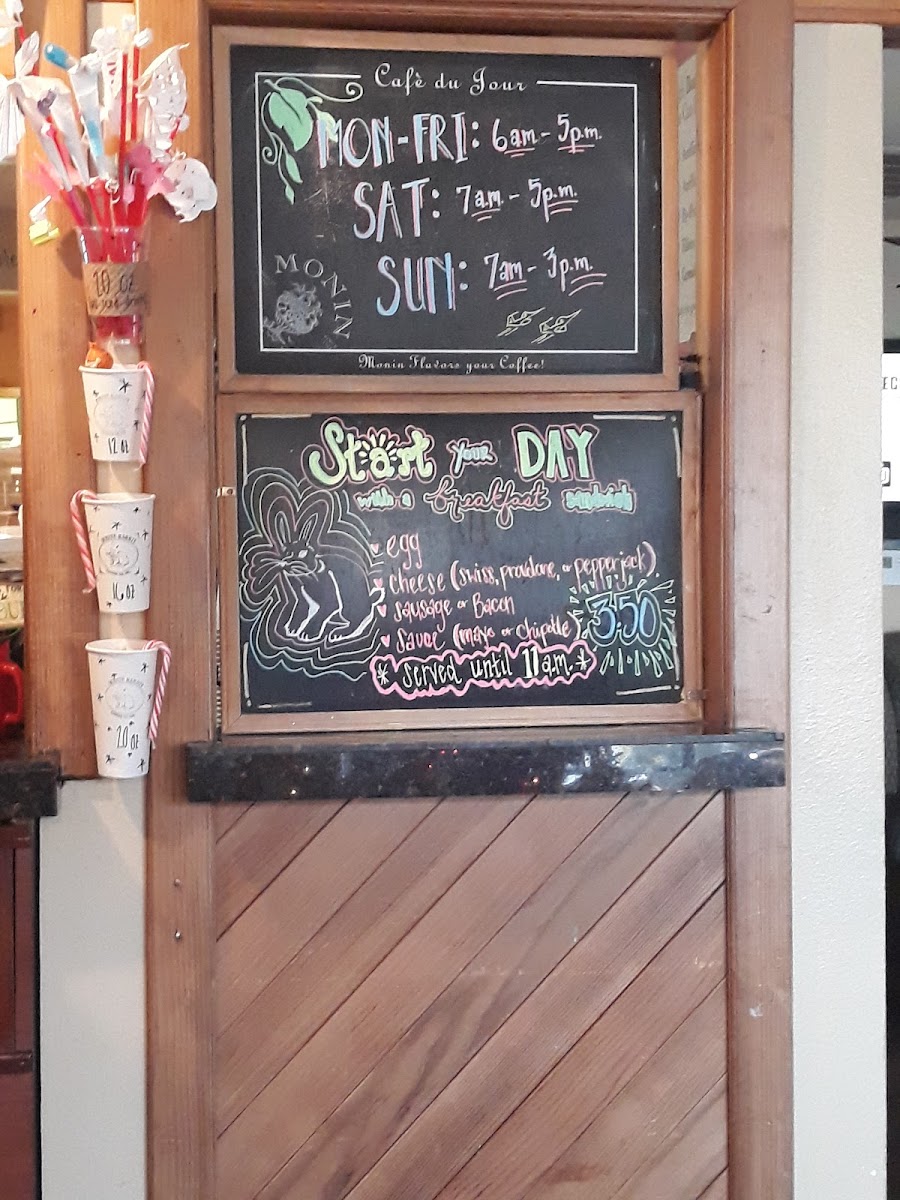 Cafè du Jour
MON-FRI: 6am - 5p.m.
SAT: 7a.m. - 5p.m.
SUN: 7am - 3p.m.
MONIN
Monin Flavors your Coffee!
Start your DAY
with a breakfast sandwich
egg
cheese (swiss, provolone, or pepperjack)
sausage or Bacon
sauce (mayo or chipotle)
3.50
* served until 11a.m. *
20 oz
12 oz
WHITE RABBIT
16 oz
WHITE RABBIT
20 oz